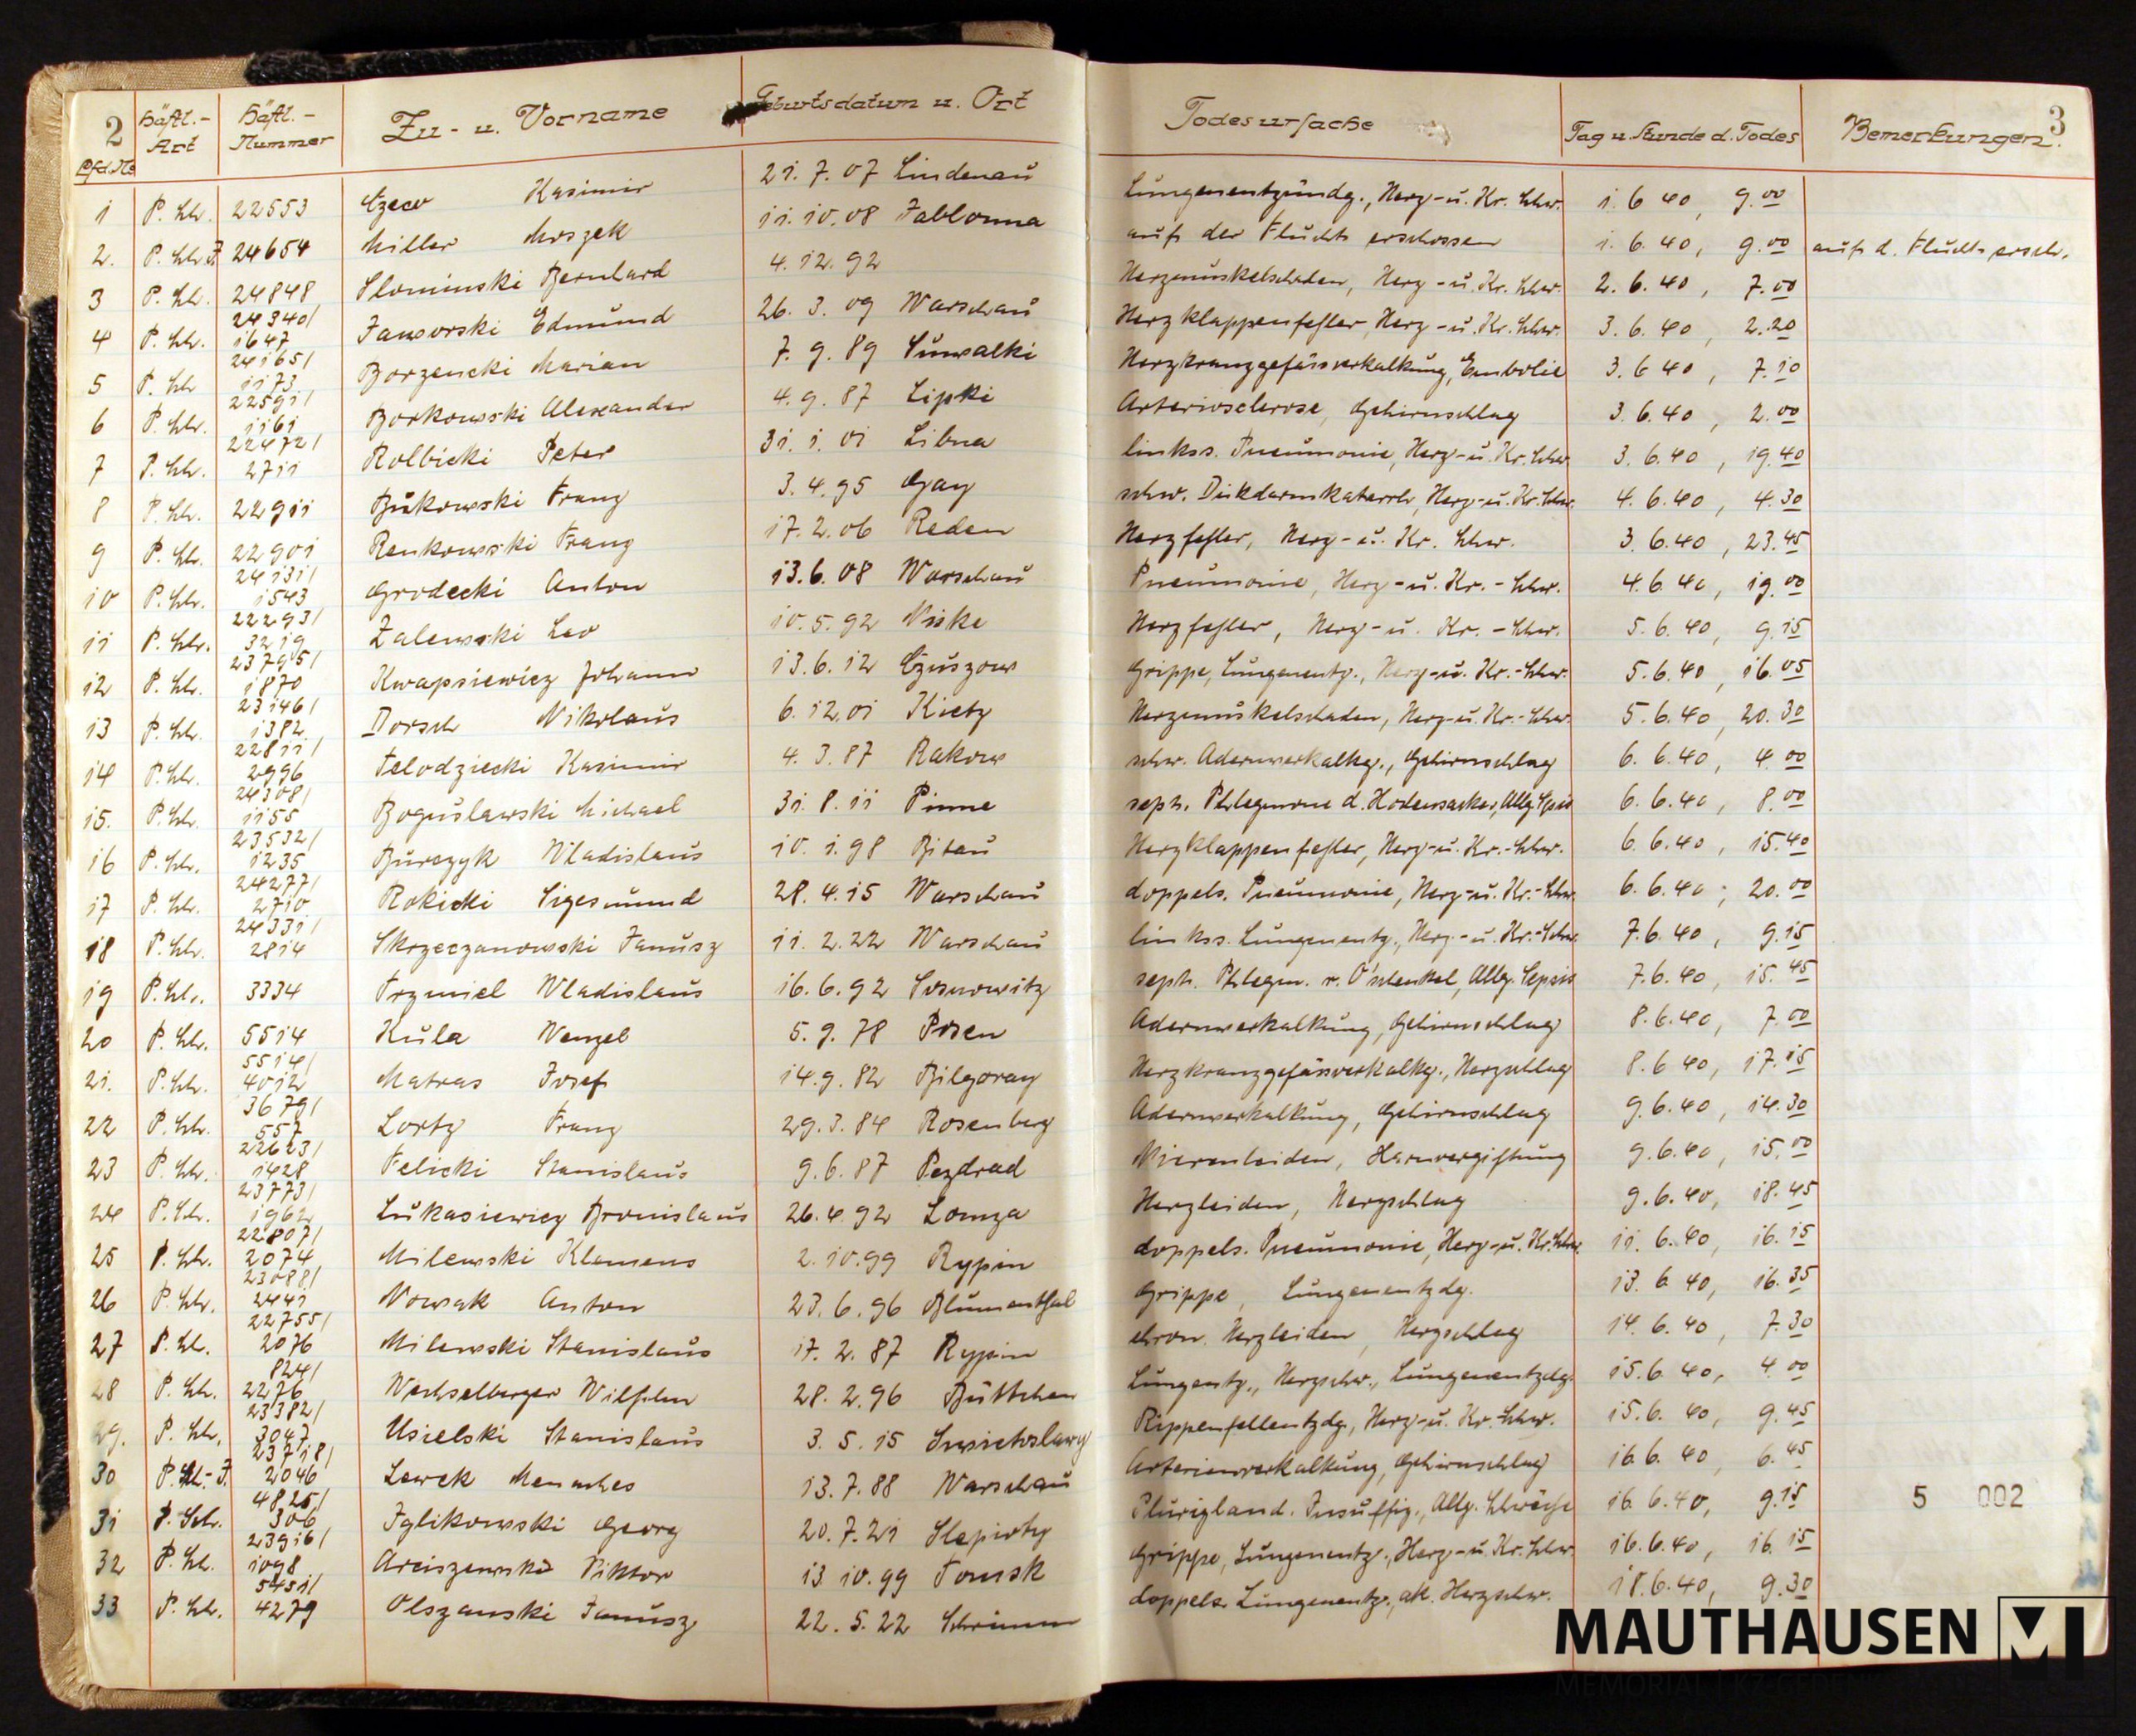 2 Häftl.- Art Häftl.- Nummer Zu- u. Vorname Geburtsdatum u. Ort Todesursache Tag u. Stunde d. Todes Bemerkungen. 3
Lfd.No
1 P. Sch. 22553 Czeco Kasimir 21. 7. 07 Lindenau Lungenentzündg., Herz-u. Kr. Schw. 1. 6 40, 9.00
2. P. Sch J. 24654 Miller Moszek 11. 10. 08 Jablonna auf der Flucht erschossen 1. 6. 40, 9.00 auf d. Flucht ersch.
3 P. Sch. 24848 Slominski Bernhard 4. 12. 92 Herzmuskelschaden, Herz-u. Kr. Schw. 2. 6. 40, 7.00
4 P. Sch. 24340/1647 Jaworski Edmund 26. 3. 09 Warschau Herzklappenfehler, Herz-u. Kr. Schw. 3. 6. 40, 2.20
5 P. Sch 24165/1173 Borzencki Marian 7. 9. 89 Suwalki Herzkranzgefässverkalkung, Embolie 3. 6 40, 7.10
6 P. Sch. 22591/1161 Borkowski Alexander 4. 9. 87 Lipki Arteriosclerose, Gehirnschlag 3. 6. 40, 2.00
7 P. Sch. 22472/2711 Rolbicki Peter 31. 1. 01 Libna linkss. Pneumonie, Herz-u. Kr. Schw 3. 6. 40, 19.40
8 P. Sch. 22911 Bukowski Franz 3. 4. 95 Gay schw. Dickdarmkatarrh, Herz-u. Kr. Schw. 4. 6. 40, 4.30
9 P. Sch. 22901 Renkowski Franz 17. 2. 06 Reden Herzfehler, Herz-u. Kr. Schw. 3. 6. 40, 23.45
10 P. Sch. 24131/1543 Grodecki Anton 13. 6. 08 Warschau Pneumonie, Herz-u. Kr.-Schw. 4. 6. 40, 19.00
11 P. Sch. 22293/3219 Zalewski Leo 10. 5. 92 Niske Herzfehler, Herz-u. Kr.-Schw. 5. 6. 40, 9.15
12 P. Sch. 23795/1870 Kwapsiewicz Johann 13. 6. 12 Czuszow Grippe, Lungenentz., Herz-u. Kr.-Schw. 5. 6. 40, 16.05
13 P. Sch. 23146/1382 Dorsch Nikolaus 6. 12. 01 Kietz Herzmuskelschaden, Herz-u. Kr.-Schw. 5. 6. 40, 20.30
14 P. Sch. 22811/2996 Telodziecki Kasimir 4. 3. 87 Rakow schw. Adernverkalkg., Gehirnschlag 6. 6. 40, 4.00
15. P. Sch. 24308/1155 Boguslawski Michael 31. 8. 11 Pinne sept. Phlegmone d. Hodensackes, Allg. Sepsis 6. 6. 40, 8.00
16 P. Sch. 23532/1235 Burczyk Wladislaus 10. 1. 98 Bitau Herzklappenfehler, Herz-u. Kr.-Schw. 6. 6. 40, 15.40
17 P. Sch. 24277/2710 Rokicki Sigesmund 28. 4. 15 Warschau doppels. Pneumonie, Herz-u. Kr.-Schw. 6. 6. 40, 20.00
18 P. Sch. 24331/2814 Skrzeczanowski Janusz 11. 2. 22 Warschau linkss. Lungenentz., Herz-u. Kr.-Schw. 7. 6. 40, 9.15
19 P. Sch. 3334 Trzmiel Wladislaus 16. 6. 92 Sosnowitz sept. Phlegm. r. O'schenkel, Allg. Sepsis 7. 6. 40, 15.45
20 P. Sch. 5514 Kula Wenzel 5. 9. 78 Posen Adernverkalkung, Gehirnschlag 8. 6. 40, 7.00
21. P. Sch. 5514/4012 Matras Josef 14. 9. 82 Bilgoray Herzkranzgefässverkalkg., Herzschlag 8. 6 40, 17.15
22 P. Sch. 3679/557 Lortz Franz 29. 3. 84 Rosenberg Adernverkalkung, Gehirnschlag 9. 6. 40, 14.30
23 P. Sch. 22623/1428 Felicki Stanislaus 9. 6. 87 Pezdrad Nierenleiden, Harnvergiftung 9. 6. 40, 15.00
24 P. Sch. 23773/1962 Lukasiewicz Bronislaus 26. 4. 92 Lomza Herzleiden, Herzschlag 9. 6. 40, 18.45
25 P. Sch. 22807/2074 Milewski Klemens 2. 10. 99 Rypin doppels. Pneumonie, Herz-u. Kr. Schw. 11. 6. 40, 16.15
26 P. Sch. 23088/2441 Nowak Anton 23. 6. 96 Blumenthal Grippe, Lungenentzdg. 13. 6 40, 16.35
27 P. Sch. 22755/2076 Milewski Stanislaus 17. 2. 87 Rypin chron. Herzleiden, Herzschlag 14. 6. 40, 7.30
28 P. Sch. 824/2276 Wechselberger Wilhelm 28. 2. 96 Büttchen Lungentz., Herzschw., Lungenentzdg. 15. 6 40, 4.00
29. P. Sch. 23382/3047 Usielski Stanislaus 3. 5. 15 Swietoslawy Rippenfellentzdg., Herz-u. Kr.-Schw. 15. 6. 40, 9.45
30 P. Sch-J. 23718/2046 Lewek Menasches 13. 7. 88 Warschau Arterienverkalkung, Gehirnschlag 16. 6. 40, 6.45
31 P. Sch. 4825/306 Iglikowski Georg 20. 7. 21 Slepiotz Plurigland. Insuffiz., Allg. Schwäche 16. 6. 40, 9.15 5 002
32 P. Sch. 23916/1098 Arciszewski Viktor 13. 10. 99 Tomsk Grippe, Lungenentz., Herz-u. Kr. Schw. 16. 6. 40, 16.15
33 P. Sch. 5451/4279 Olszanski Janusz 22. 5. 22 Schrimm doppels. Lungenentz., akt. Herzschw. 18. 6. 40, 9.30
MAUTHAUSEN
MEMORIAL